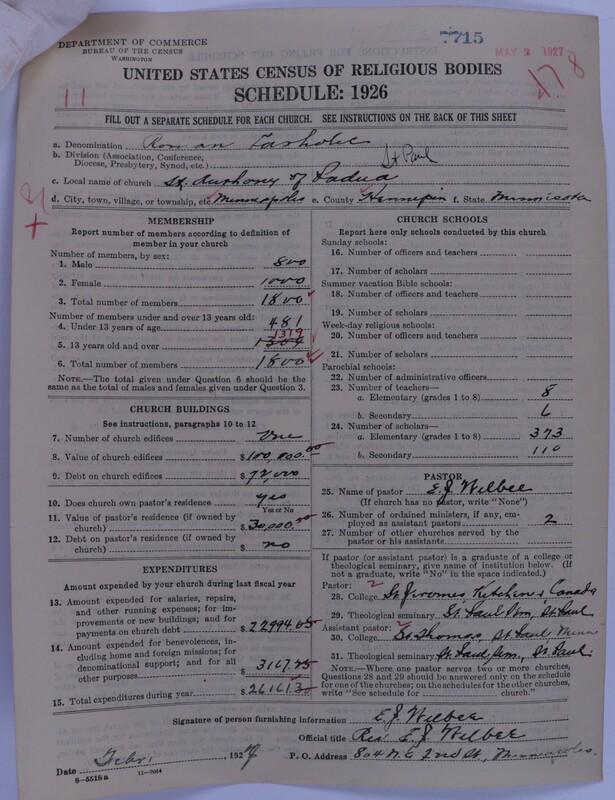 DEPARTMENT OF COMMERCE
BUREAU OF THE CENSUS
WASHINGTON
7715
MAY 2 1927
UNITED STATES CENSUS OF RELIGIOUS BODIES
SCHEDULE: 1926
11
478
FILL OUT A SEPARATE SCHEDULE FOR EACH CHURCH. SEE INSTRUCTIONS ON THE BACK OF THIS SHEET
a. Denomination Roman Catholic
b. Division (Association, Conference, Diocese, Presbytery, Synod, etc.) St Paul
c. Local name of church St. Anthony of Padua
d. City, town, village, or township, etc. Minneapolis e. County Hennepin f. State Minnesota
MEMBERSHIP
Report number of members according to definition of member in your church
Number of members, by sex:
1. Male 800
2. Female 1000
3. Total number of members 1800
Number of members under and over 13 years old:
4. Under 13 years of age 481
1319
5. 13 years old and over
6. Total number of members 1800
NOTE.—The total given under Question 6 should be the same as the total of males and females given under Question 3.
CHURCH BUILDINGS
See instructions, paragraphs 10 to 12
7. Number of church edifices One
8. Value of church edifices $100,000.00
9. Debt on church edifices $72,000
10. Does church own pastor's residence yes
Yes or No
11. Value of pastor's residence (if owned by church) $30,000.00
12. Debt on pastor's residence (if owned by church) $ no
EXPENDITURES
Amount expended by your church during last fiscal year
13. Amount expended for salaries, repairs, and other running expenses; for improvements or new buildings; and for payments on church debt $22994.05
14. Amount expended for benevolences, including home and foreign missions; for denominational support; and for all other purposes 3167.25
15. Total expenditures during year $26161.3
CHURCH SCHOOLS
Report here only schools conducted by this church
Sunday schools:
16. Number of officers and teachers
17. Number of scholars
Summer vacation Bible schools:
18. Number of officers and teachers
19. Number of scholars
Week-day religious schools:
20. Number of officers and teachers
21. Number of scholars
Parochial schools:
22. Number of administrative officers
23. Number of teachers—
a. Elementary (grades 1 to 8) 8
b. Secondary 6
24. Number of scholars—
a. Elementary (grades 1 to 8) 373
b. Secondary 110
PASTOR
25. Name of pastor E.J. Wilbee
(If church has no pastor, write "None")
26. Number of ordained ministers, if any, employed as assistant pastors 2
27. Number of other churches served by the pastor or his assistants
If pastor (or assistant pastor) is a graduate of a college or theological seminary, give name of institution below. (If not a graduate, write "No" in the space indicated.)
Pastor:
28. College St Jeromes Kitchener Canada
29. Theological seminary St. Paul Sem, St. Paul
Assistant pastor:
30. College St Thomas, St Paul Minn
31. Theological seminary St. Paul Sem, St. Paul.
NOTE.—Where one pastor serves two or more churches, Questions 28 and 29 should be answered only on the schedule for one of the churches; on the schedules for the other churches, write "See schedule for church."
Signature of person furnishing information E.J. Wilbee
Official title Rev. E.J. Wilbee
Date Febr. 1927 P. O. Address 804 N.E. 2nd St., Minneapolis.
8-5518a 11-9054